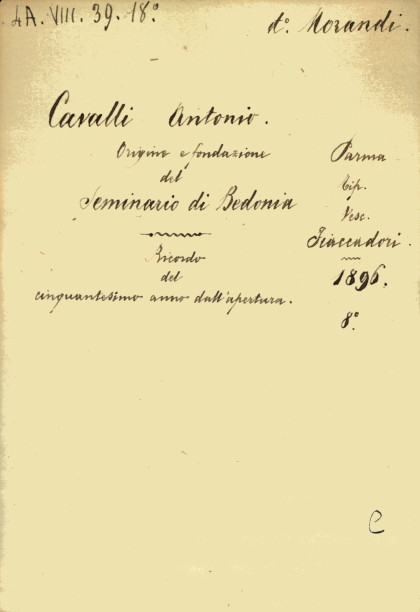 4A. VIII. 39. 18°
d° Morandi.
Cavalli Antonio.
Origine e fondazione
del
Seminario di Bedonia
Ricordo
del
cinquantesimo anno dall'apertura.
Parma
tip.
Vesc.
Fiaccadori.
1896.
8°
C